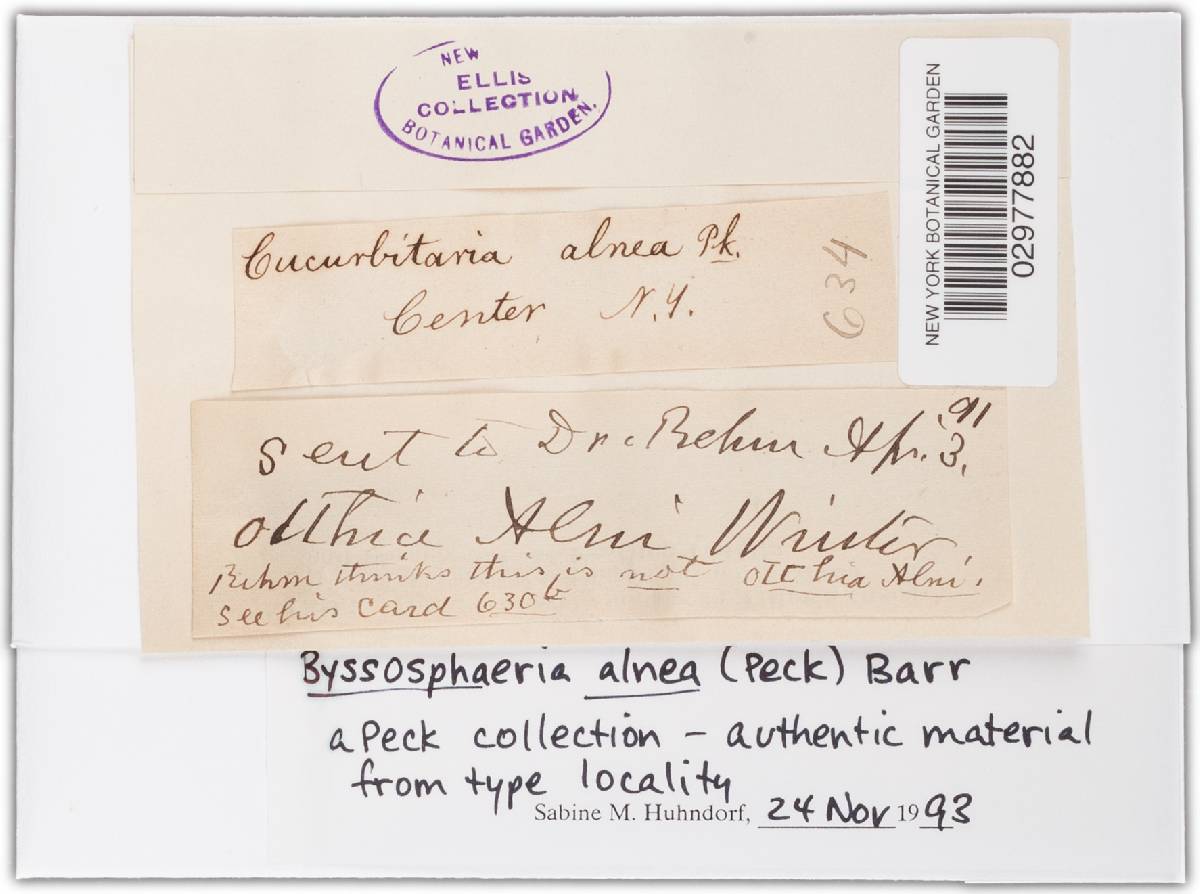 NEW
ELLIS
COLLECTION
BOTANICAL GARDEN.
NEW YORK BOTANICAL GARDEN
02977882
Cucurbitaria alnea Pk.
Center N.Y.
634
sent to Dr. Rehm Apr. 3, '91
otthia Alni Winter.
Rehm thinks this is not otthia Alni.
see his card 630b
Byssosphaeria alnea (Peck) Barr
a Peck collection – authentic material
from type locality
Sabine M. Huhndorf, 24 Nov 1993